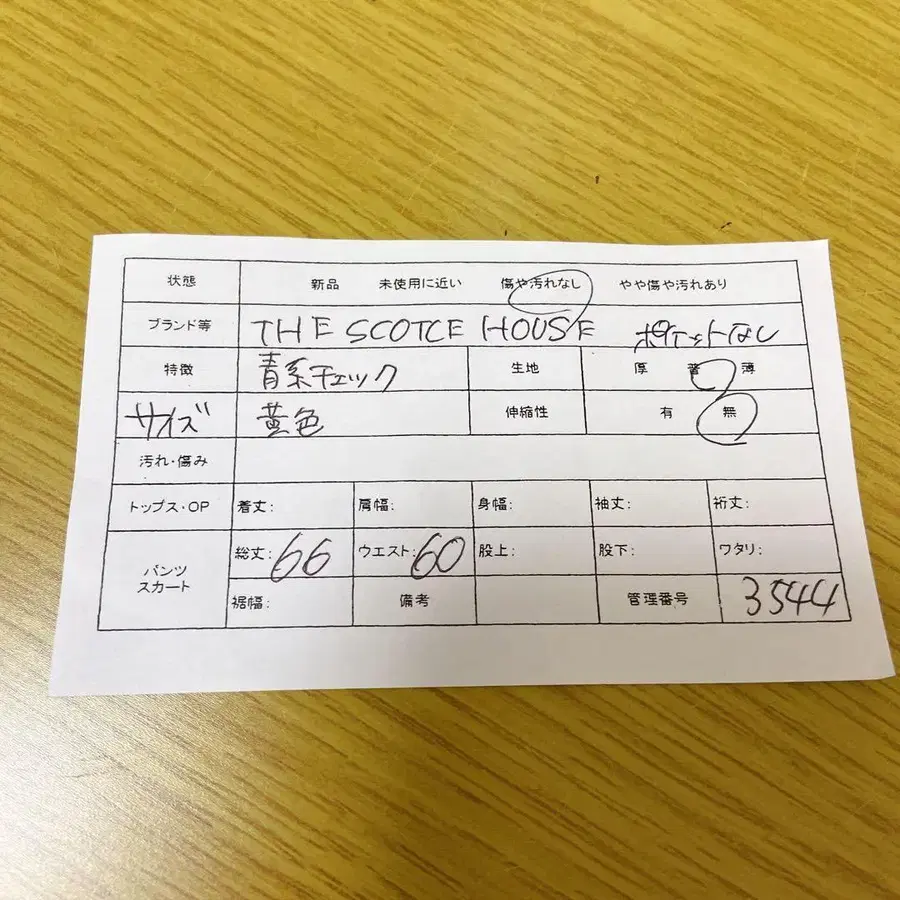 状態 新品 未使用に近い 傷や汚れなし やや傷や汚れあり
ブランド等 THE SCOTCE HOUSE ポケットなし
特徴 青系チェック 生地 厚 普 薄
サイズ 黄色 伸縮性 有 無
汚れ・傷み
トップス・OP 着丈: 肩幅: 身幅: 袖丈: 裄丈:
パンツ スカート 総丈:66 ウエスト:60 股上: 股下: ワタリ:
裾幅: 備考 管理番号 3544